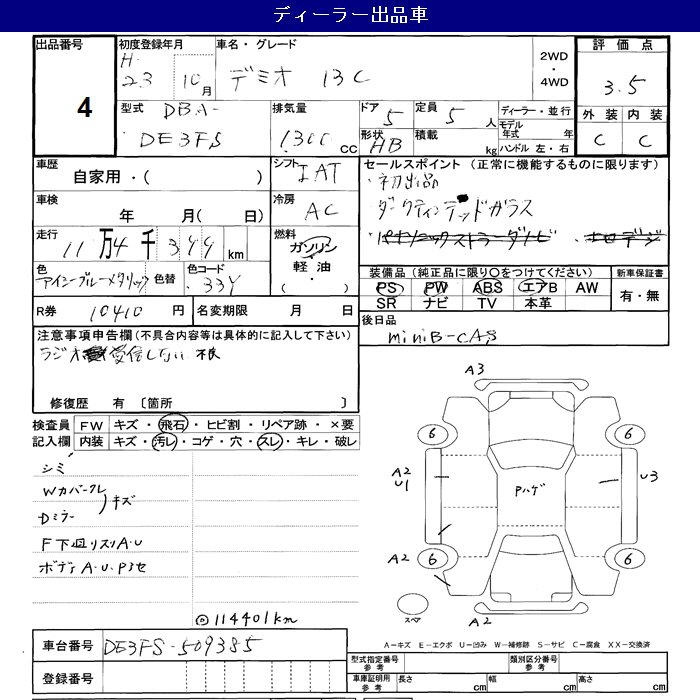 ディーラー出品車
出品番号
4
初度登録年月
H.
23 10月
車名・グレード
デミオ 13C
2WD
・
4WD
評価点
3.5
外装 内装
C C
型式 DBA-
DE3FS
排気量
1300 CC
ドア 5
形状 HB
定員 5 人
積載 kg
ディーラー・並行
モデル年式 年
ハンドル 左・右
車歴
自家用・( )
シフト IAT
車検
年 月( 日)
冷房 AC
走行
11万4千344km
燃料
ガソリン
軽油・
( )
色
アイシーブルーメタリック
色替
色コード
33Y
R券 10410 円
名変期限 月 日
セールスポイント (正常に機能するものに限ります)
・初出品
ダークティンテッドガラス
装備品 (純正品に限り〇をつけてください)
PS PW ABS エアB AW
SR ナビ TV 本革
新車保証書
有・無
後日品
miniB-CAS
注意事項申告欄(不具合内容等は具体的に記入して下さい)
ラジオ受信しない
修復歴 有 〔箇所 〕
検査員記入欄
FW キズ・飛石・ヒビ割・リペア跡・×要
内装 キズ・汚レ・コゲ・穴・スレ・キレ・破レ
シミ
Wカバークレ
Dミラー
キズ
F下廻リスリA・U
ボディA・U・Pヨセ
◎114401km
A3
6 6
A2
U1
Pハゲ
U3
A2 6 6
スペア
A2
A-キズ E-エクボ U-凹み W-補修跡 S-サビ C-腐食 XX-交換済
車台番号 DE3FS-509385
登録番号
型式指定番号
参考
類別区分番号
参考
車庫証明用
参考
長さ cm
幅 cm
高さ cm